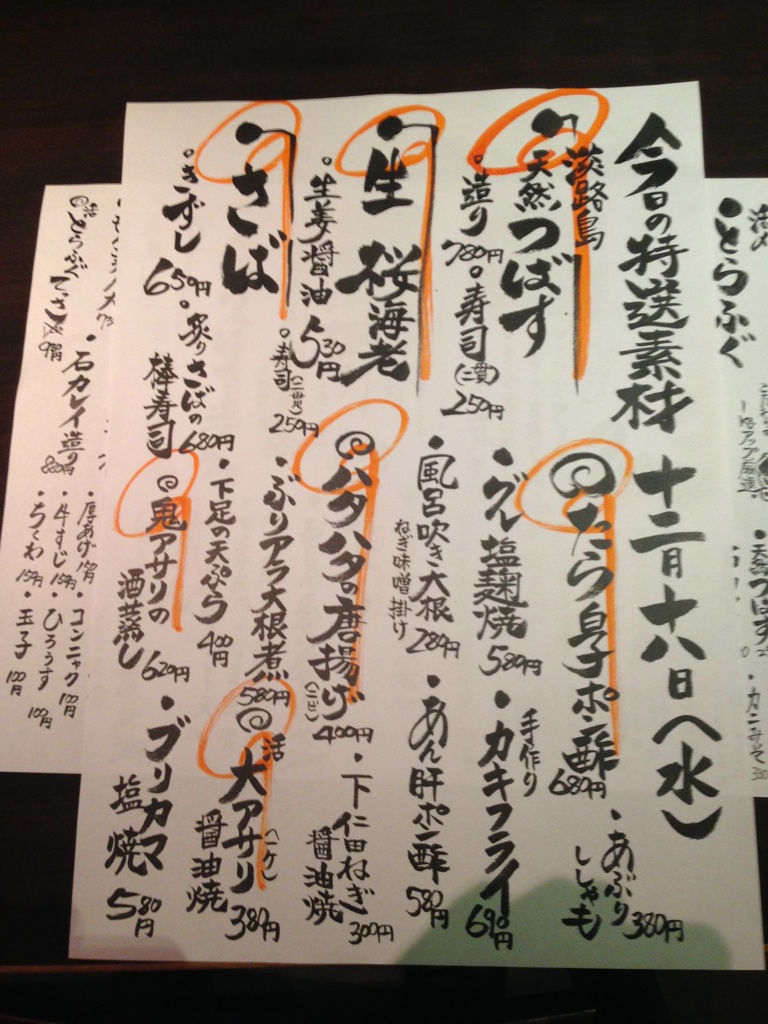 今日の特選素材 十二月十八日(水)
淡路島
天然つばす
造り 780円
寿司(二貫) 250円
生桜海老
生姜醤油 530円
寿司(二貫) 250円
さば
きずし 650円
炙りさばの棒寿司 680円
たら白子ポン酢 680円
あぶりししゃも 380円
グレ塩麹焼 580円
手作り
カキフライ 690円
風呂吹き大根
ねぎ味噌掛け 280円
あん肝ポン酢 580円
ハタハタの唐揚げ(二ピ) 400円
下仁田ねぎ
醤油焼 300円
ぶりアラ大根煮 580円
活
大アサリ(一ケ)
醤油焼 380円
下足の天ぷら 400円
鬼アサリの
酒蒸し 620円
ブリカマ
塩焼 580円
活〆
とらふぐ
天然つばす
カニみそ
活
とらふぐ
てっさ
石カレイ造り 880円
厚あげ
コンニャク 100円
牛すじ 150円
ひろうす 100円
ちくわ 150円
玉子 100円